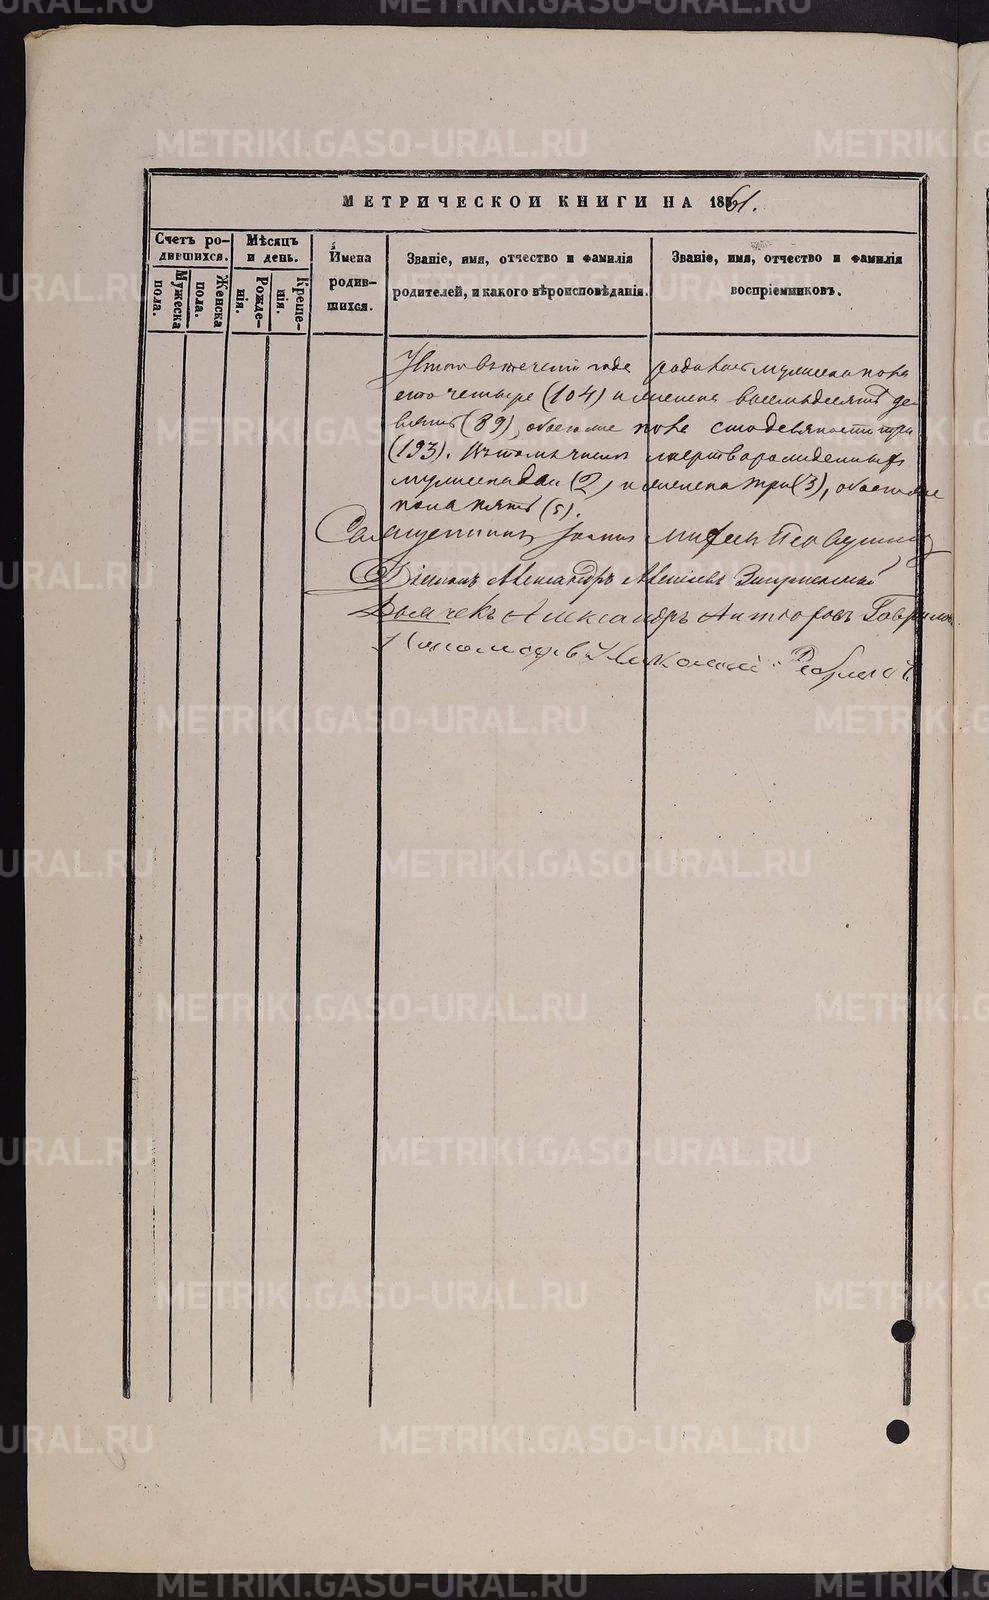 МЕТРИЧЕСКОЙ КНИГИ НА 1861.
Счетъ ро-
дившихся.
Мужеска
пола.
Женска
пола.
Мѣсяцъ
и день.
Рожде-
нія.
Креще-
нія.
Имена
родив-
шихся.
Званіе, имя, отчество и фамилія
родителей, и какого вѣроисповѣданія.
Званіе, имя, отчество и фамилія
воспріемниковъ.
Итого въ течении года родилось мужеска пола
сто четыре (104) и женска восемьдесятъ де-
вять (89), обоего пола сто девяносто три
(193). Въ томъ числѣ мертворожденныхъ
мужеска два (2) и женска три (3), обоего
пола пять (5).
Священникъ Іоаннъ Первушинъ
Діаконъ Александръ Алексіевъ
Дьячекъ Александръ Гаврилов
Пономарь Николай
METRIKI.GASO-URAL.RU